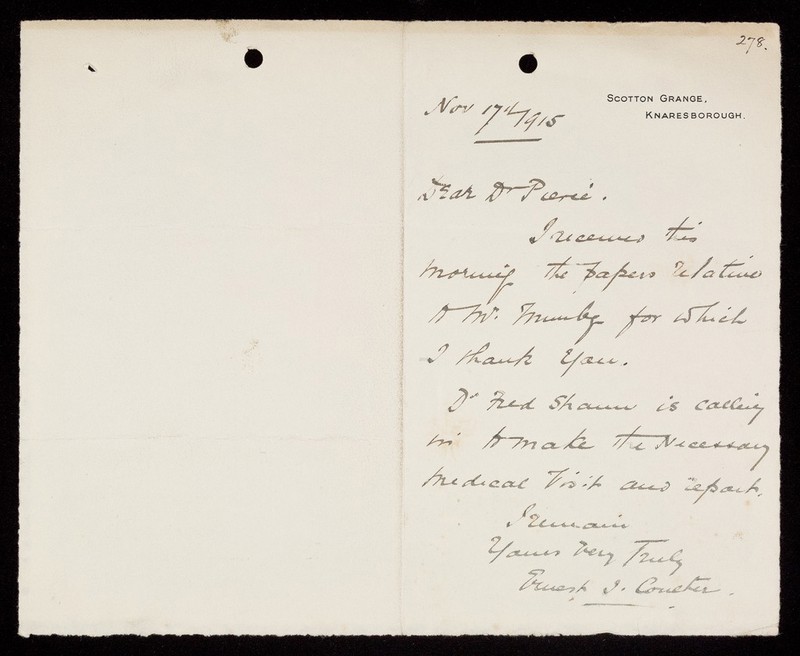 278.
SCOTTON GRANGE,
KNARESBOROUGH.
Nov 17th/1915
Dear Dr Pierce.
I received this
morning the papers relative
to Mr. Mumby for which
I thank you.
Dr Fred Shann is calling
in to make the Necessary
medical Visit and report.
I remain
Yours Very Truly
Ernest J.